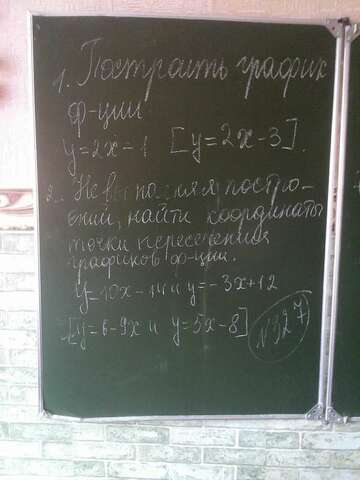 1. Построить график
ф-ции
y=2x-1 [y=2x-3].
2. Не выполняя постро-
ений, найти координаты
точки пересечения
графиков ф-ции.
y=10x-14 и y=-3x+12
[y=6-9x и y=5x-8]
№327